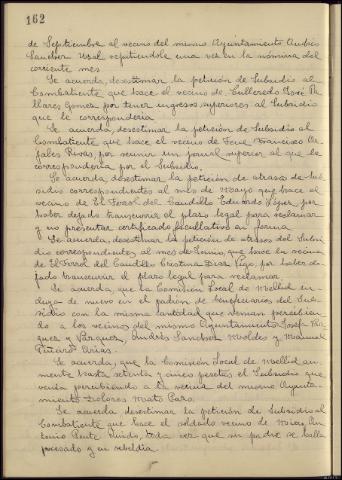 162
de Septiembre al vecino del mismo Ayuntamiento Andrés
Sanchez Vzal repitiendole una vez en la nómina del
corriente mes.
Se acuerda, desestimar la petición de Subsidio al
Combatiente que hace el vecino de Culleredo José Pa
llares Gomez, por tener ingresos superiores al Subsidio
que le correspondería
Se acuerda, desestimar la petición de Subsidio al
Combatiente que hace el vecino de Fene Francisco
Rivas, por reunir un jornal superior al que le
correspondería por el Subsidio.
Se acuerda desestimar la petición de atrasos de Sub
sidio correspondientes al mes de Mayo que hace el
vecino de El Ferrol del Caudillo Eduardo López, por
haber dejado transcurrir el plazo legal para reclamar
y no presentar certificado facultativo en forma
Se acuerda, desestimar la petición de atrasos del Subsi
dio correspondientes al mes de Junio, que hace la vecina
de El Ferrol del Caudillo Cristina Diaz por haber de
jado transcurrir el plazo legal para reclamar
Se acuerda, que la Comisión Local de Mellid in
cluya de nuevo en el padrón de beneficiarios del Sub
sidio con la misma cantidad que venian percibien
do a los vecinos del mismo Ayuntamiento Josefa
y Vazquez, Andrés Sanchez Moldes y Manuel
Piñeiro Arias.
Se acuerda, que la Comisión Local de Mellid, au
mente hasta setenta y cinco pesetas el Subsidio que
venía percibiendo a la vecina del mismo Ayunta
miento Dolores Mato Pazo.
Se acuerda desestimar la petición de Subsidio al
Combatiente que hace el soldado vecino de An
tonio Pente toda vez que su padre se halla
procesado y en rebeldia.